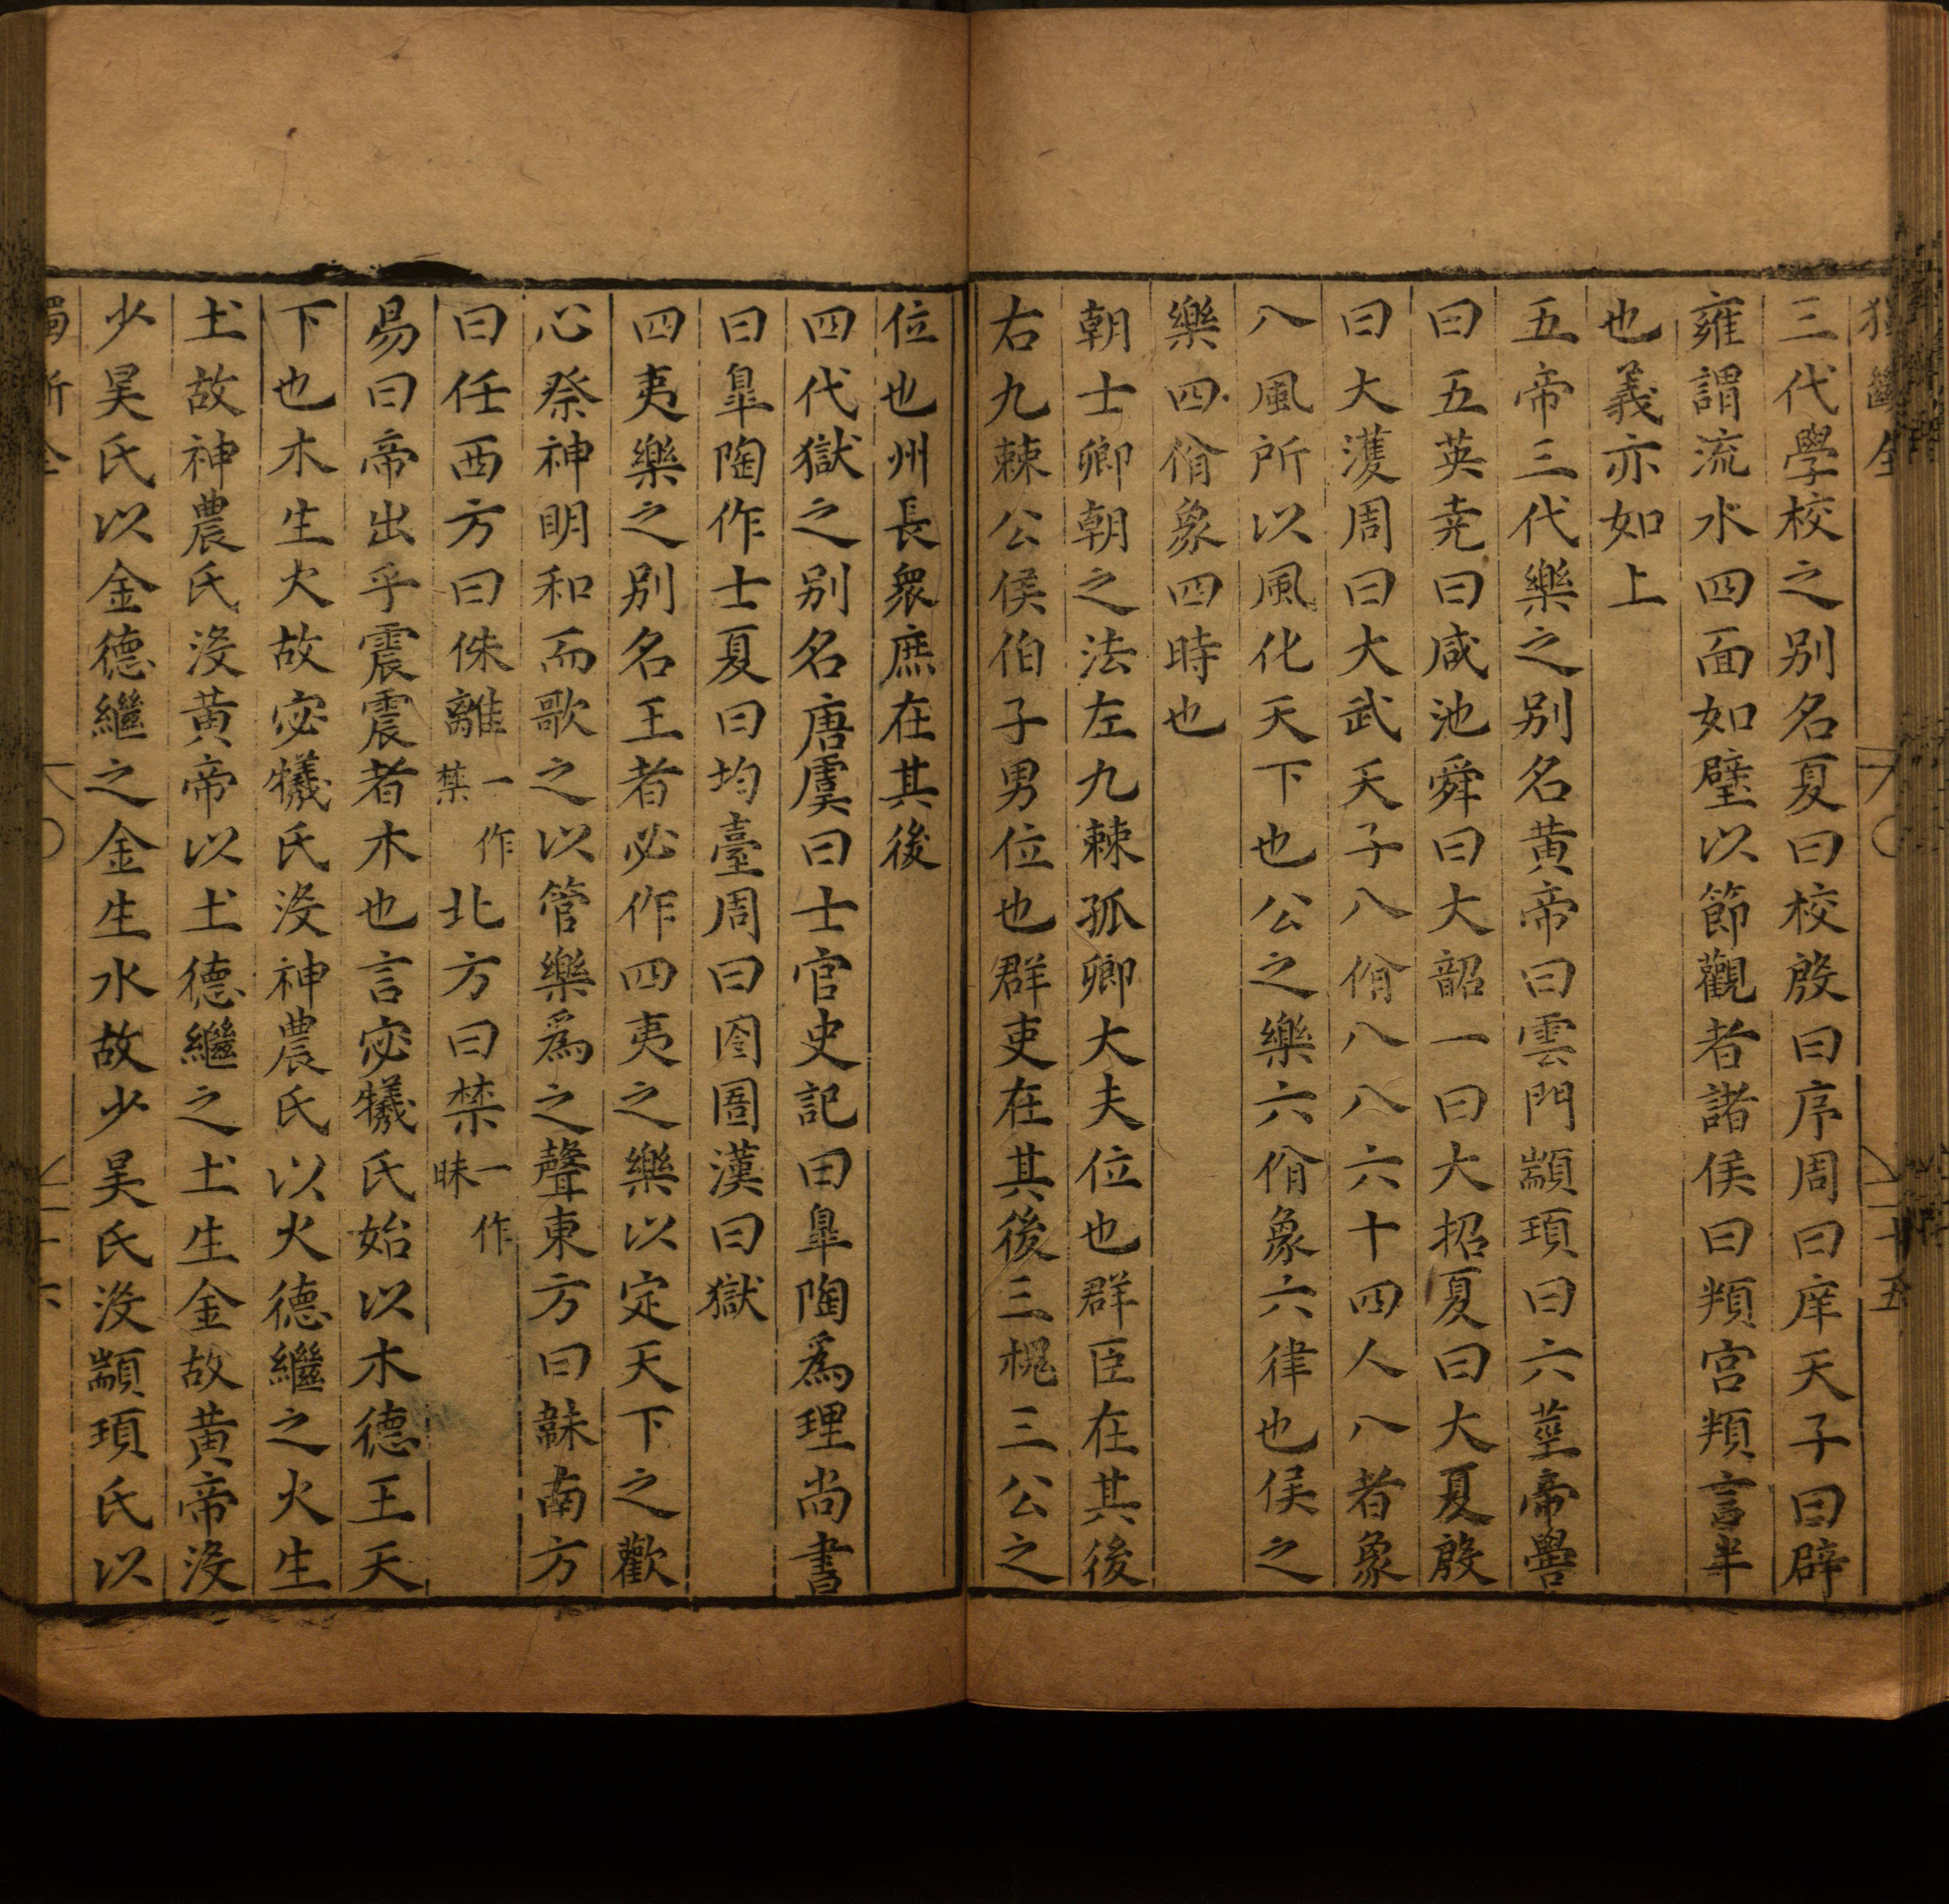 三代學校之别名夏曰校殷曰序周曰庠天子曰辟
雍謂流水四面如璧以節觀者諸侯曰頖宮頖言半
也義亦如上
五帝三代樂之别名黄帝曰雲門顓頊曰六莖帝嚳
曰五英尭曰咸池舜曰大韶一曰大招夏曰大夏殷
曰大濩周曰大武天子八佾八八六十四人八者象
八風所以風化天下也公之樂六佾象六律也侯之
樂四佾象四時也
朝士卿朝之法左九棘孤卿大夫位也群臣在其後
右九棘公侯伯子男位也群吏在其後三槐三公之
位也州長衆庶在其後
四代獄之别名唐虞曰士官史記曰臯陶爲理尚書
曰臯陶作士夏曰均臺周曰囹圄漢曰獄
四夷樂之别名王者必作四夷之樂以定天下之歡
心祭神明和而歌之以管樂爲之聲東方曰韎南方
曰任西方曰侏離一作禁北方曰禁一作昧
易曰帝出乎震震者木也言宓犧氏始以木德王天
下也木生火故宓犧氏沒神農氏以火德繼之火生
土故神農氏沒黄帝以土德繼之土生金故黄帝沒
少昊氏以金德繼之金生水故少昊氏沒顓頊氏以